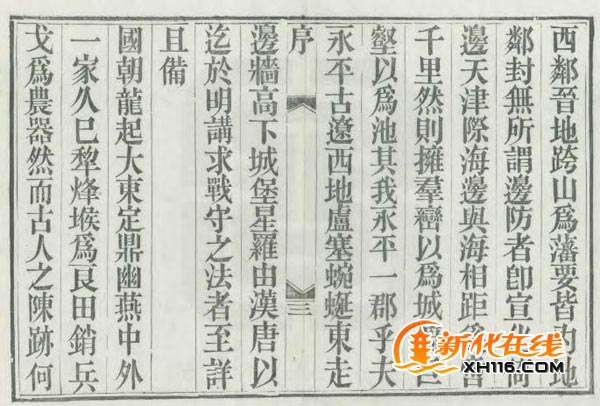 西鄰晉地跨山爲藩要皆內地
鄰封無所謂邊防者卽宣化
邊天津際海邊與海相距
千里然則擁羣巒以爲城
壑以爲池其我永平一郡乎夫
永平古遼西地盧塞蜿蜒東走
序
三
邊牆高下城堡星羅由漢唐以
迄於明講求戰守之法者至詳
且備
國朝龍起大東定鼎幽燕中外
一家久巳犂烽堠爲良田銷兵
戈爲農器然而古人之陳跡何
新化在线
XH116.com